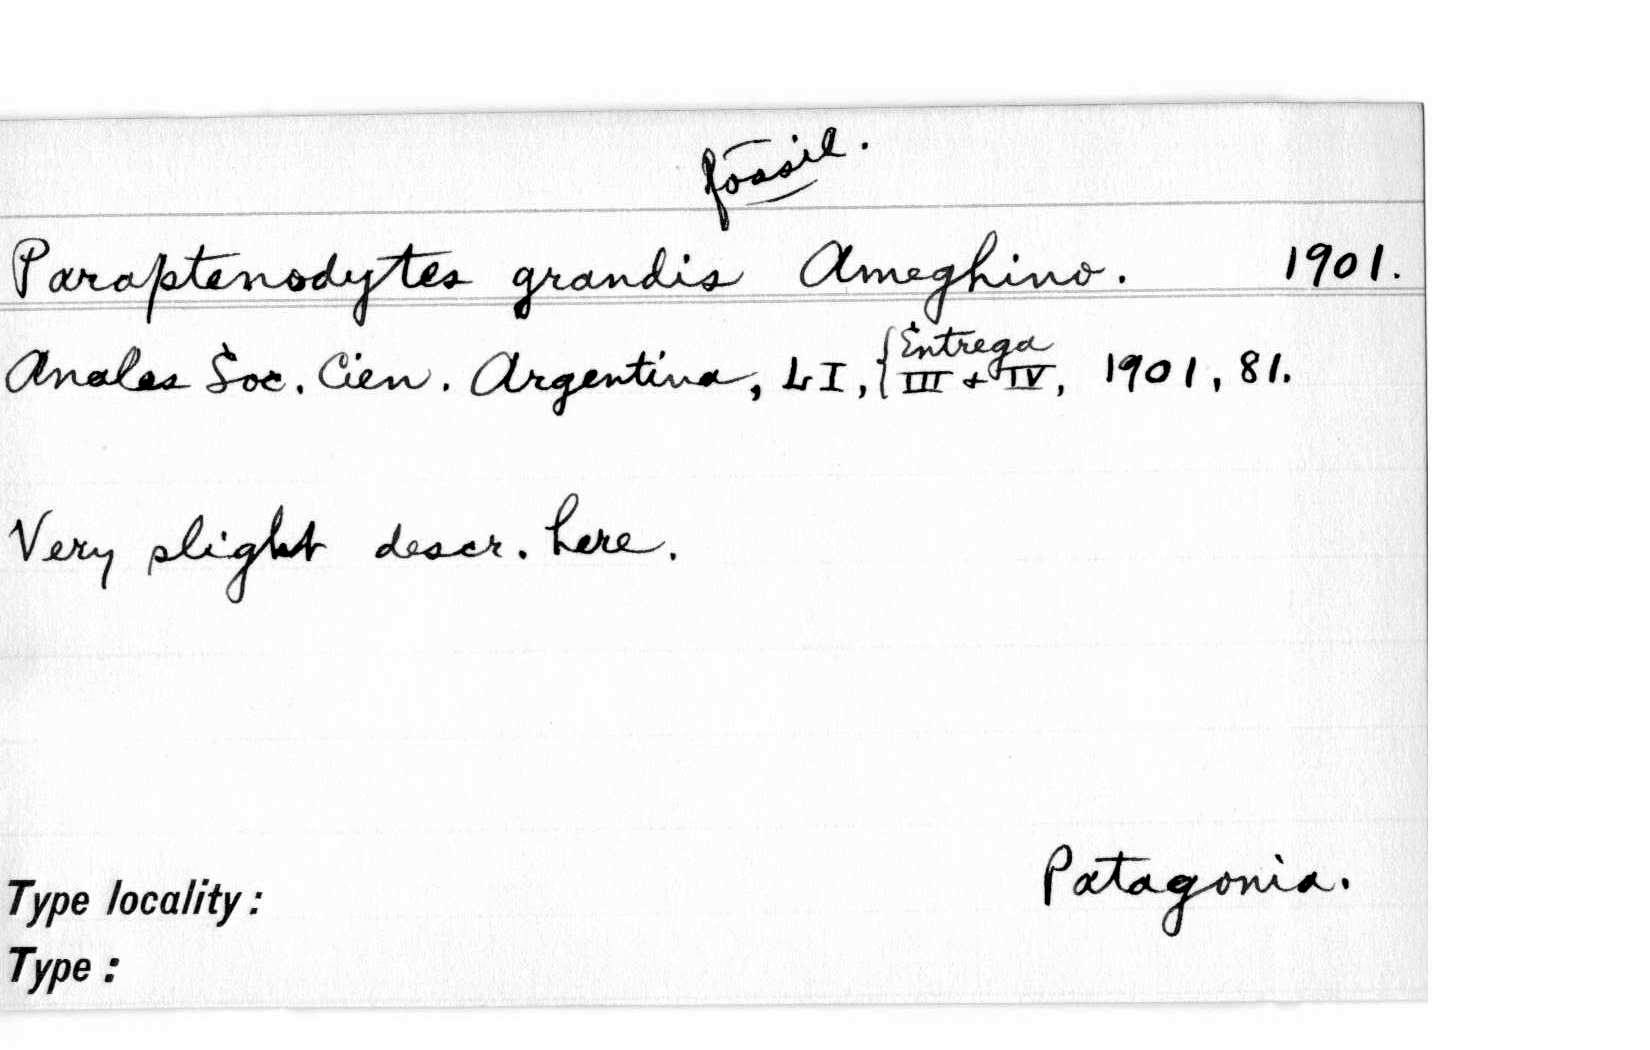 fossil.
Paraptenodytes grandis Ameghino. 1901.
Anales Soc. Cien. Argentina, LI, {Entrega III + IV, 1901, 81.
Very slight descr. here.
Patagonia.
Type locality:
Type: